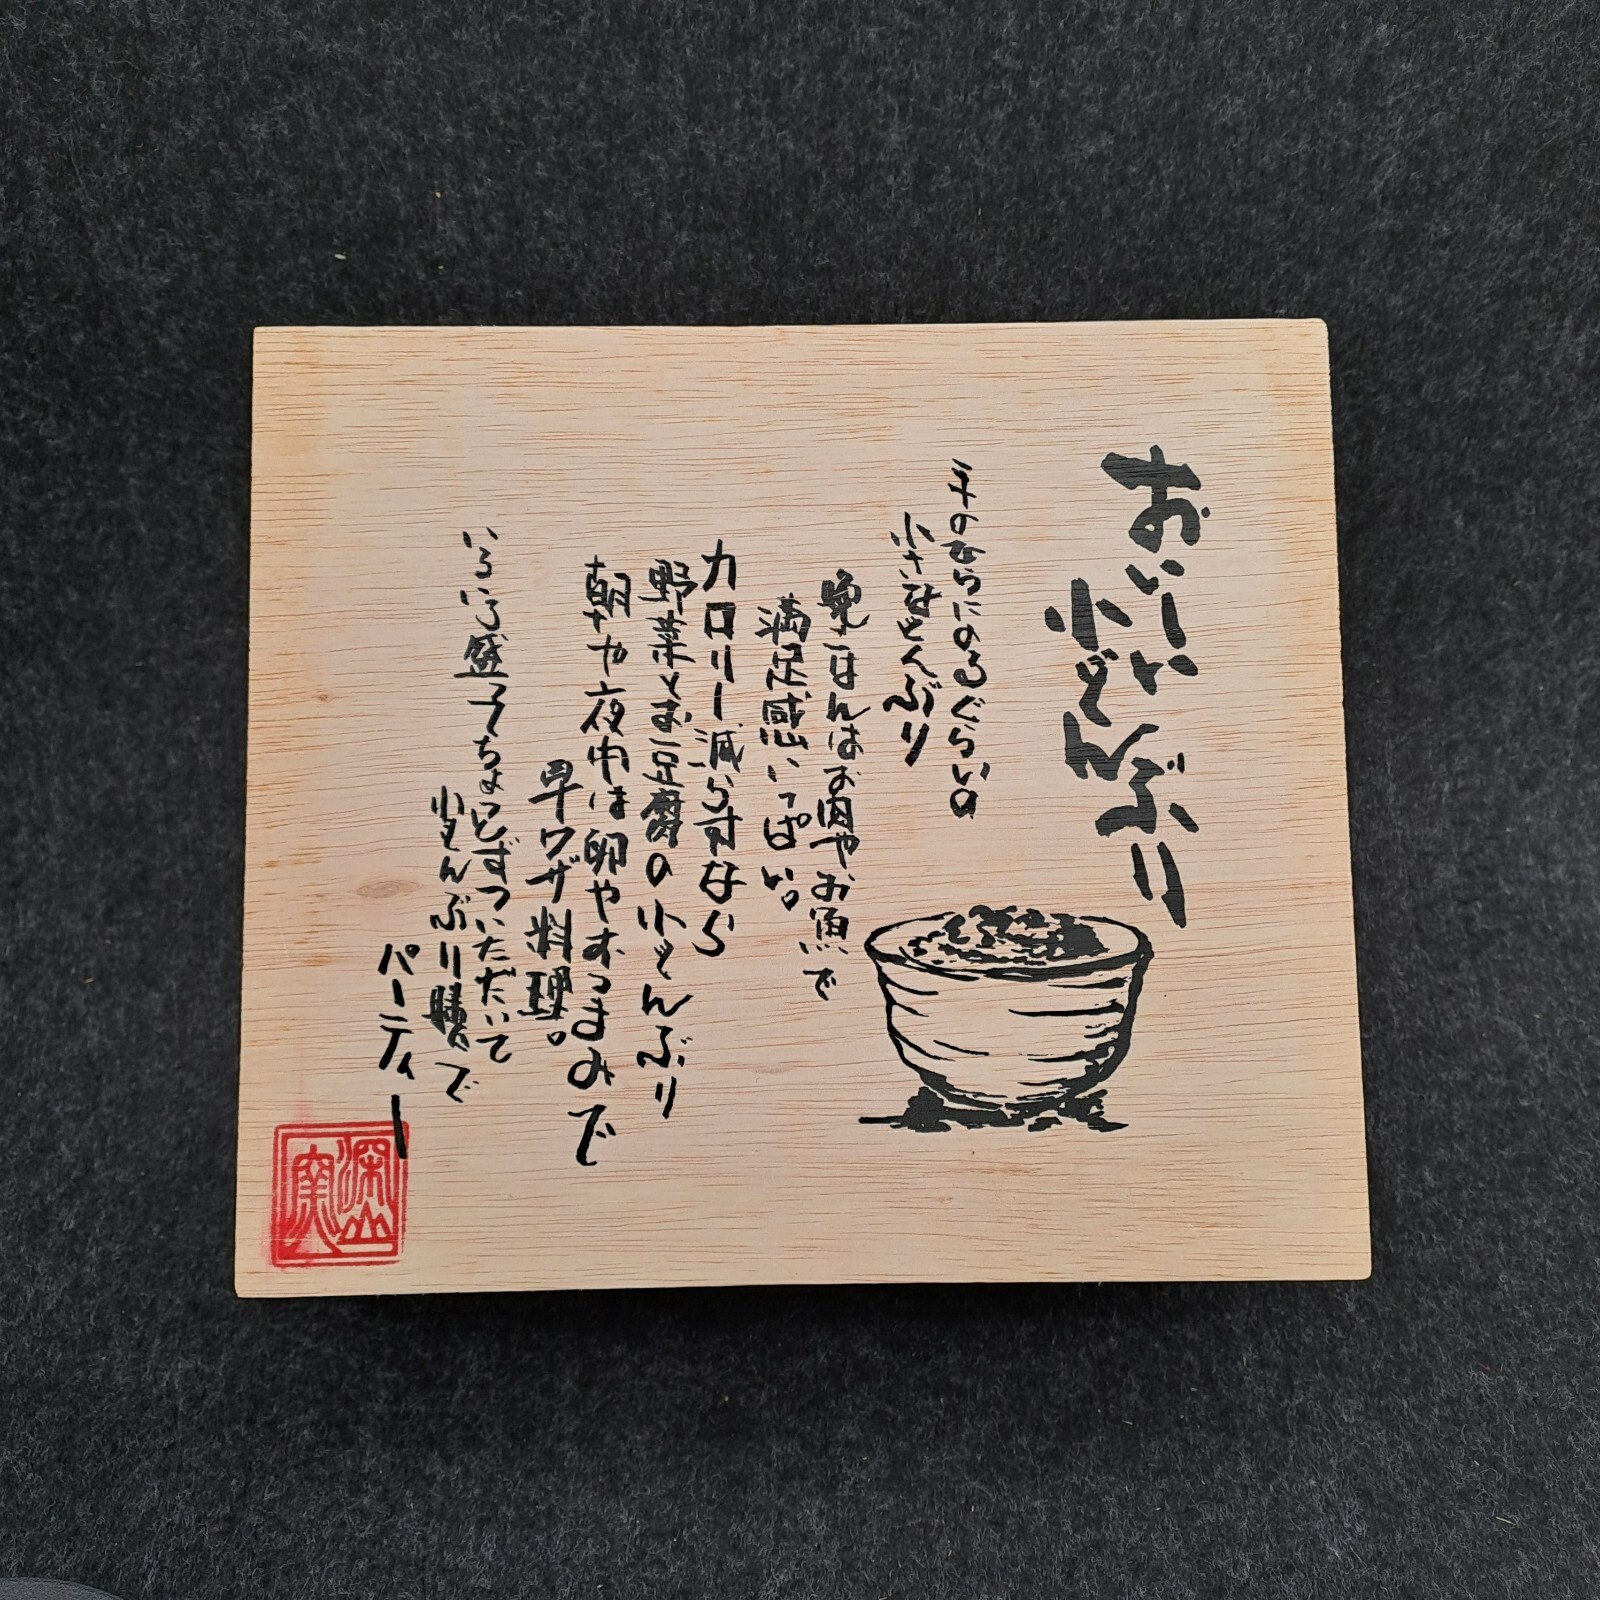 おいしい
小どんぶり
手のひらにのるぐらいの
小さなどんぶり
晩ごはんはお肉やお魚で
満足感いっぱい。
カロリー減らすなら
野菜とお豆腐の小どんぶり
朝や夜中は卵やおつまみで
早ワザ料理。
いろいろ盛ってちょっとずついただいて
小どんぶり膳で
パーティー
深山窯